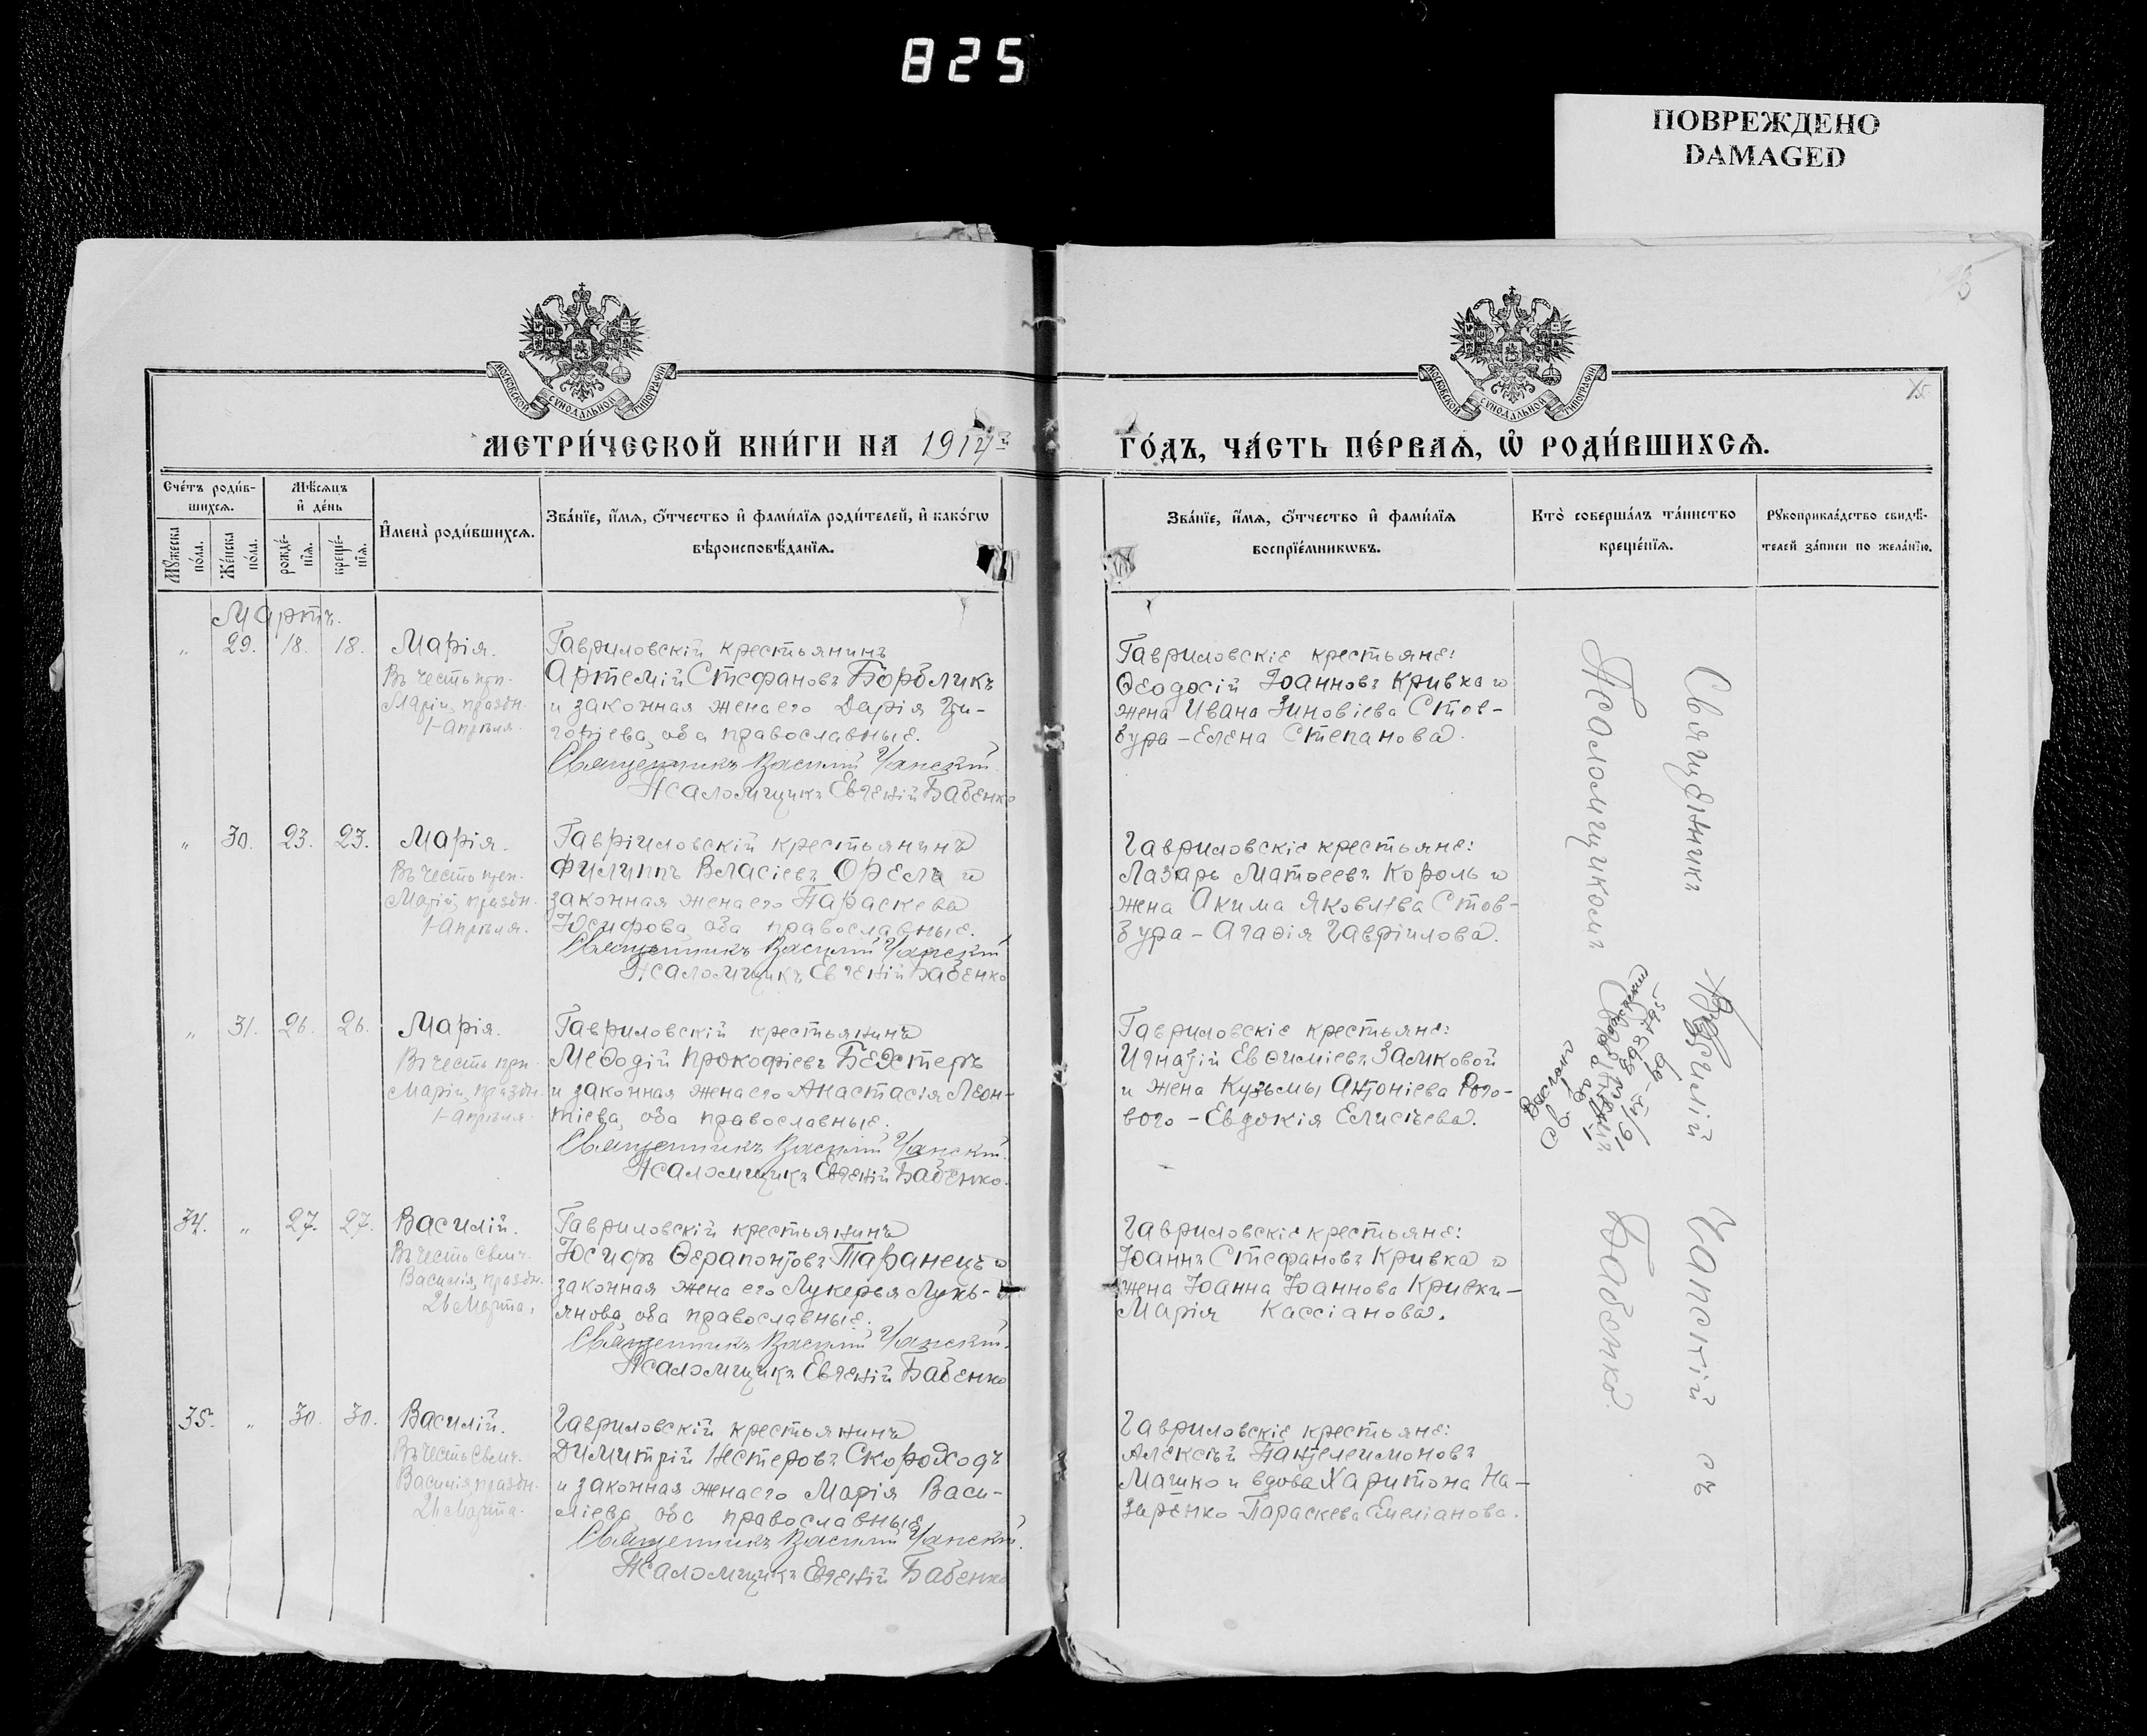 825
ПОВРЕЖДЕНО
DAMAGED
МОСКОВСКОЙ СѴНОДАЛЬНОЙ ТИПОГРАФІИ
МОСКОВСКОЙ СѴНОДАЛЬНОЙ ТИПОГРАФІИ
МЕТРИ́ЧЕСКОЙ КНИ́ГИ НА 1914й ГО́ДЪ, ЧА́СТЬ ПЕ́РВАѦ, Ѡ҆ РОДИ́ВШИХСѦ.
Сче́тъ роди́в-
шихсѧ.
Мѣ́сѧцъ
и҆ де́нь
Мꙋ́жеска
по́ла.
Же́нска
по́ла.
рожде́-
нїѧ.
креще́-
нїѧ.
И҆мена̀ роди́вшихсѧ.
Зва́нїе, и҆́мѧ, ѻ҆́тчество и҆ фами́лїѧ роди́телей, и҆ како́гѡ
вѣроисповѣ́данїѧ.
Зва́нїе, и҆́мѧ, ѻ҆́тчество и҆ фами́лїѧ
воспрїе́мникѡвъ.
Кто̀ соверша́лъ та́инство
креще́нїѧ.
Рꙋкоприкла́дство свидѣ́-
телей за́писи по жела́нїю.
Мартъ.
" 29. 18. 18. Марія.
Въ честь пр.
Маріи, праздн.
1 Апрѣля.
Гавриловскій крестьянинъ
Артемій Стефановъ Борбликъ
и законная жена его Дарія Гри-
горіева, оба православные.
Священникъ Василій Чанскій
Псаломщикъ Евгеній Бабенко
Гавриловскіе крестьяне:
Ѳеодосій Іоанновъ Кривка и
жена Ивана Зиновіева Стов-
бура – Елена Степанова.
" 30. 23. 23. Марія.
Въ честь преп.
Маріи, праздн.
1 Апрѣля.
Гавріиловскій крестьянинъ
Филиппъ Власіевъ Орелъ и
законная жена его Параскева
Іосифова, оба православные.
Священникъ Василій Чанскій
Псаломщикъ Евгеній Бабенко
Гавриловскіе крестьяне:
Лазарь Матѳеевъ Король и
жена Акима Яковлева Стов-
бура – Агафія Гавріилова.
" 31. 26. 26. Марія.
Въ честь пр.
Маріи, праздн.
1 Апрѣля.
Гавриловскій крестьянинъ
Меѳодій Прокофіевъ Бехтеръ
и законная жена его Анастасія Леон-
тіева, оба православные.
Священникъ Василій Чанскій.
Псаломщикъ Евгеній Бабенко.
Гавриловскіе крестьяне:
Игнатій Евѳиміевъ Замковой
и жена Кузьмы Антоніева Рого-
вого – Евдокія Елисѣева.
34. " 27. 27. Василій.
Въ честь Свмч.
Василія, праздн.
26 Марта.
Гавриловскій крестьянинъ
Іосифъ Ѳерапонтовъ Таранецъ и
законная жена его Лукерья Лукь-
янова, оба православные.
Священникъ Василій Чанскій.
Псаломщикъ Евгеній Бабенко
Гавриловскіе крестьяне:
Іоаннъ Стефановъ Кривка и
жена Іоанна Іоаннова Кривки –
Марія Кассіанова.
35. " 30. 30. Василій.
Въ честь Свмч.
Василія, праздн.
26 Марта.
Гавриловскій крестьянинъ
Димитрій Нестеровъ Скороходъ
и законная жена его Марія Васи-
ліева, оба православные
Священникъ Василій Чанскій.
Псаломщикъ Евгеній Бабенко
Гавриловскіе крестьяне:
Алексѣй Пантелеимоновъ
Машко и вдова Харитона На-
заренко – Параскева Емеліанова.
Священникъ Василій Чанскій съ
Псаломщикомъ Евгеніемъ Бабенко.